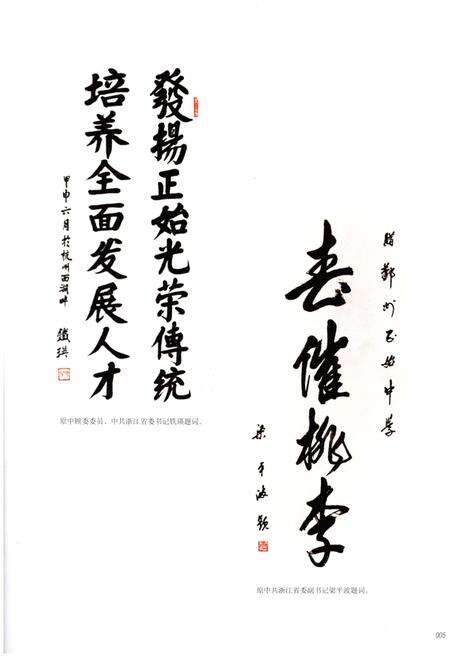 發揚正始光荣傳统
培养全面发展人才
甲申六月於杭州西湖畔
鐵瑛
原中顾委委员、中共浙江省委书记铁瑛题词。
賠鄞州正始中学
春催桃李
梁平波题
原中共浙江省委副书记梁平波题词。
005